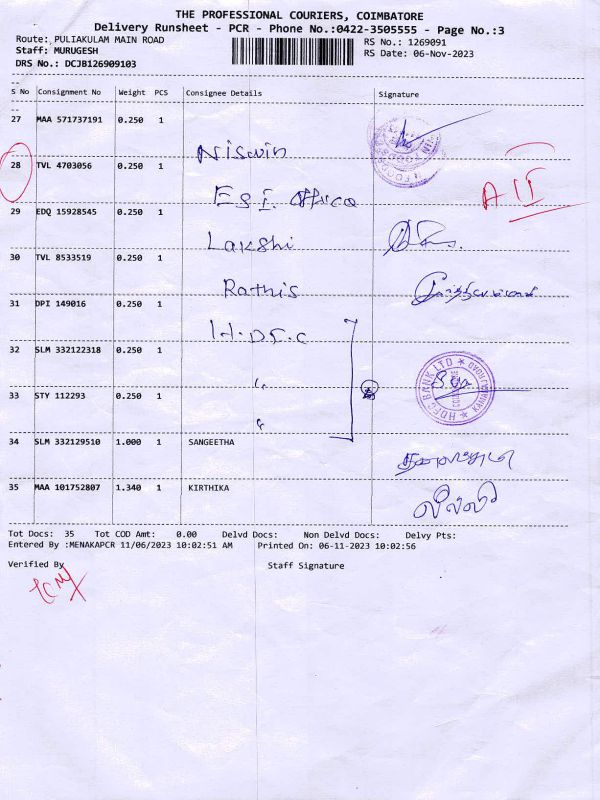 THE PROFESSIONAL COURIERS, COIMBATORE
Delivery Runsheet - PCR - Phone No.:0422-3505555 - Page No.:3
Route: PULIAKULAM MAIN ROAD RS No.: 1269091
Staff: MURUGESH RS Date: 06-Nov-2023
DRS No.: DCJB126909103
S No Consignment No Weight PCS Consignee Details Signature
27 MAA 571737191 0.250 1
Niswin
28 TVL 4703056 0.250 1
E.S.I. office
A II
29 EDQ 15928545 0.250 1
Lakshi
30 TVL 8533519 0.250 1
Rathis
31 DPI 149016 0.250 1
H.D.F.C
32 SLM 332122318 0.250 1
"
HDFC BANK LTD
33 STY 112293 0.250 1
"
34 SLM 332129510 1.000 1 SANGEETHA
35 MAA 101752807 1.340 1 KIRTHIKA
Tot Docs: 35 Tot COD Amt: 0.00 Delvd Docs: Non Delvd Docs: Delvy Pts:
Entered By :MENAKAPCR 11/06/2023 10:02:51 AM Printed On: 06-11-2023 10:02:56
Verified By Staff Signature